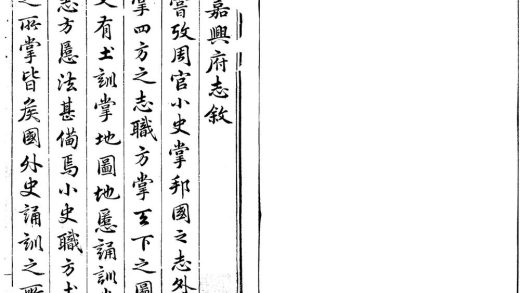 嘉興府志敘
嘗攷周官小史掌邦國之志外
掌四方之志職方掌天下之圖
又有土訓掌地圖地慝誦訓
志方慝法甚備焉小史職方土
之所掌皆矦國外史誦訓之所